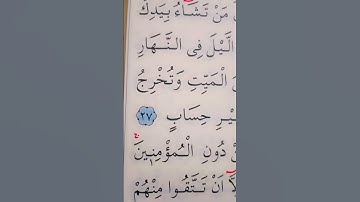 مَنْ تَشَٓاءُ بِيَدِكَ
الَّيْلَ فِى النَّهَارِ
الْمَيِّتِ وَتُخْرِجُ
يْرِ حِسَابٍ ﴿٢٧﴾
دُونِ الْمُؤْمِنٖينَ
اَنْ تَتَّقُوا مِنْهُمْ